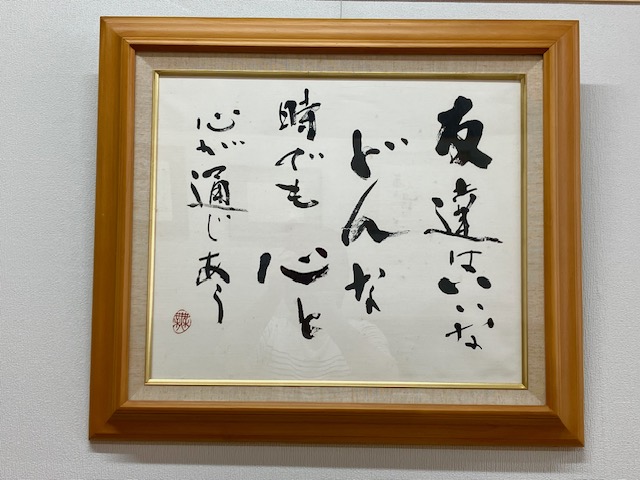 友達はいいな
どんな
時でも心と
心が通じあう